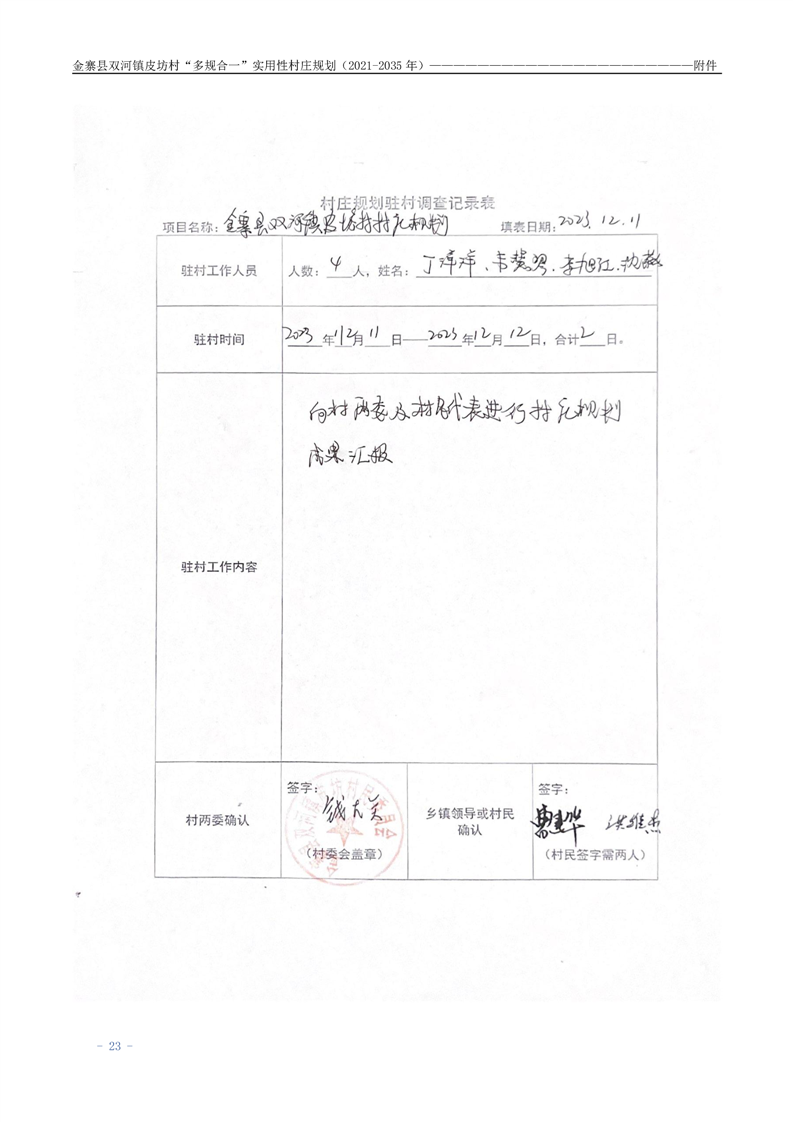 金寨县双河镇皮坊村“多规合一”实用性村庄规划（2021-2035 年）——————————————————————附件
村庄规划驻村调查记录表
项目名称：金寨县双河镇皮坊村村庄规划 填表日期：2023.12.11
驻村工作人员 人数：4人，姓名：丁萍萍、韦慧 、李旭江、沈燕
驻村时间 2023年12月11日——2023年12月12日，合计2日。
向村两委及村民代表进行村庄规划
成果汇报
驻村工作内容
村两委确认
签字：
钱大关
（村委会盖章）
乡镇领导或村民
确认
签字：
（村民签字需两人）
- 23 -